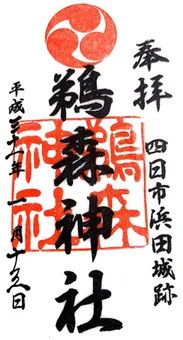 奉拝
四日市浜田城跡
鵜森神社
鵜森
神社
平成三十一年 一月 日